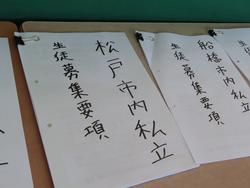 松戸市内私立
生徒募集要項
船橋市内私立
生徒募集要項